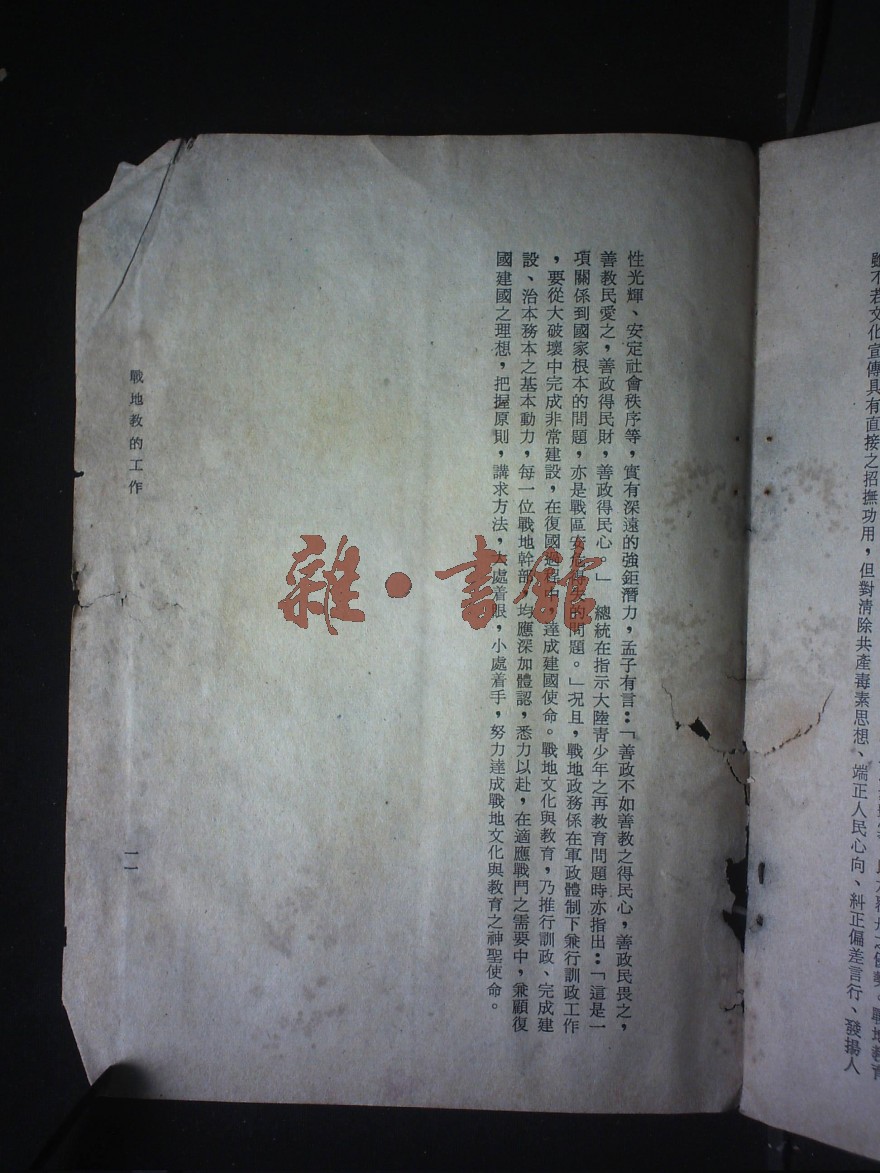 雖不若文化宣傳具有直接之招撫功用，但對清除共產毒素思想、端正人民心向、糾正偏差言行、發揚人
性光輝、安定社會秩序等，實有深遠的強鉅潛力，孟子有言：「善政不如善教之得民心，善政民畏之，
善教民愛之，善政得民財，善政得民心。」　總統在指示大陸靑少年之再教育問題時亦指出：「這是一
項關係到國家根本的問題，亦是戰區安危得失的問題。」况且，戰地政務係在軍政體制下兼行訓政工作
，要從大破壞中完成非常建設，在復國過程中，達成建國使命。戰地文化與教育，乃推行訓政、完成建
設、治本務本之基本動力，每一位戰地幹部，均應深加體認，悉力以赴，在適應戰鬥之需要中，兼顧復
國建國之理想，把握原則，講求方法，大處着眼，小處着手，努力達成戰地文化與教育之神聖使命。
戰地教的工作
一一
雜·書館